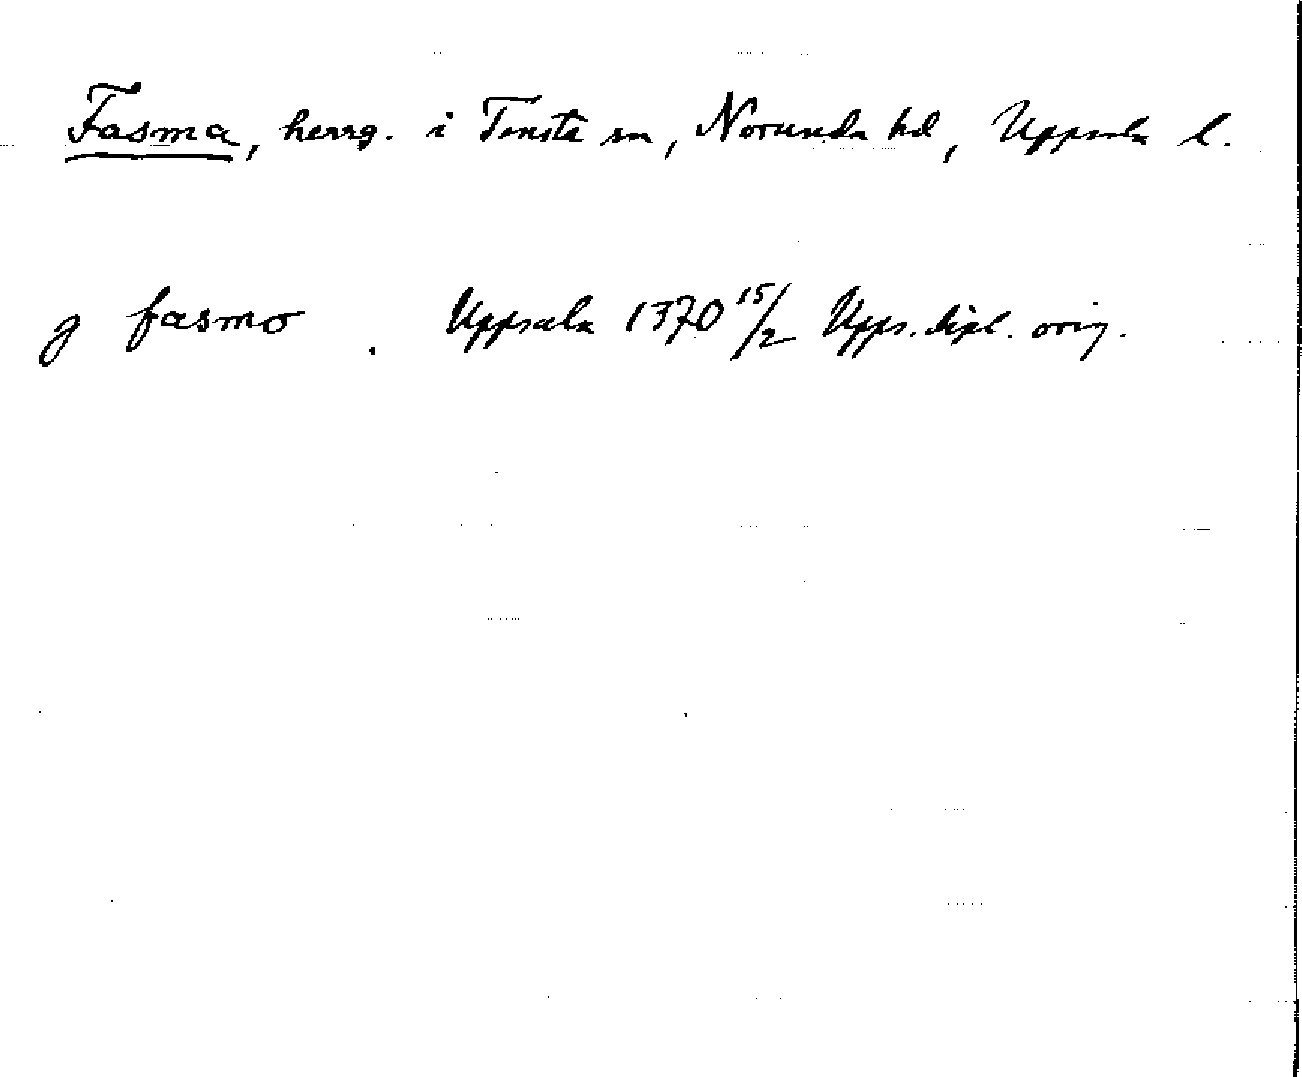 Fasma, herrg. i Tensta sn, Norunda hd, Uppsala l.
j fasmo . Uppsala 1370 15/2 Upps. dipl. orig.